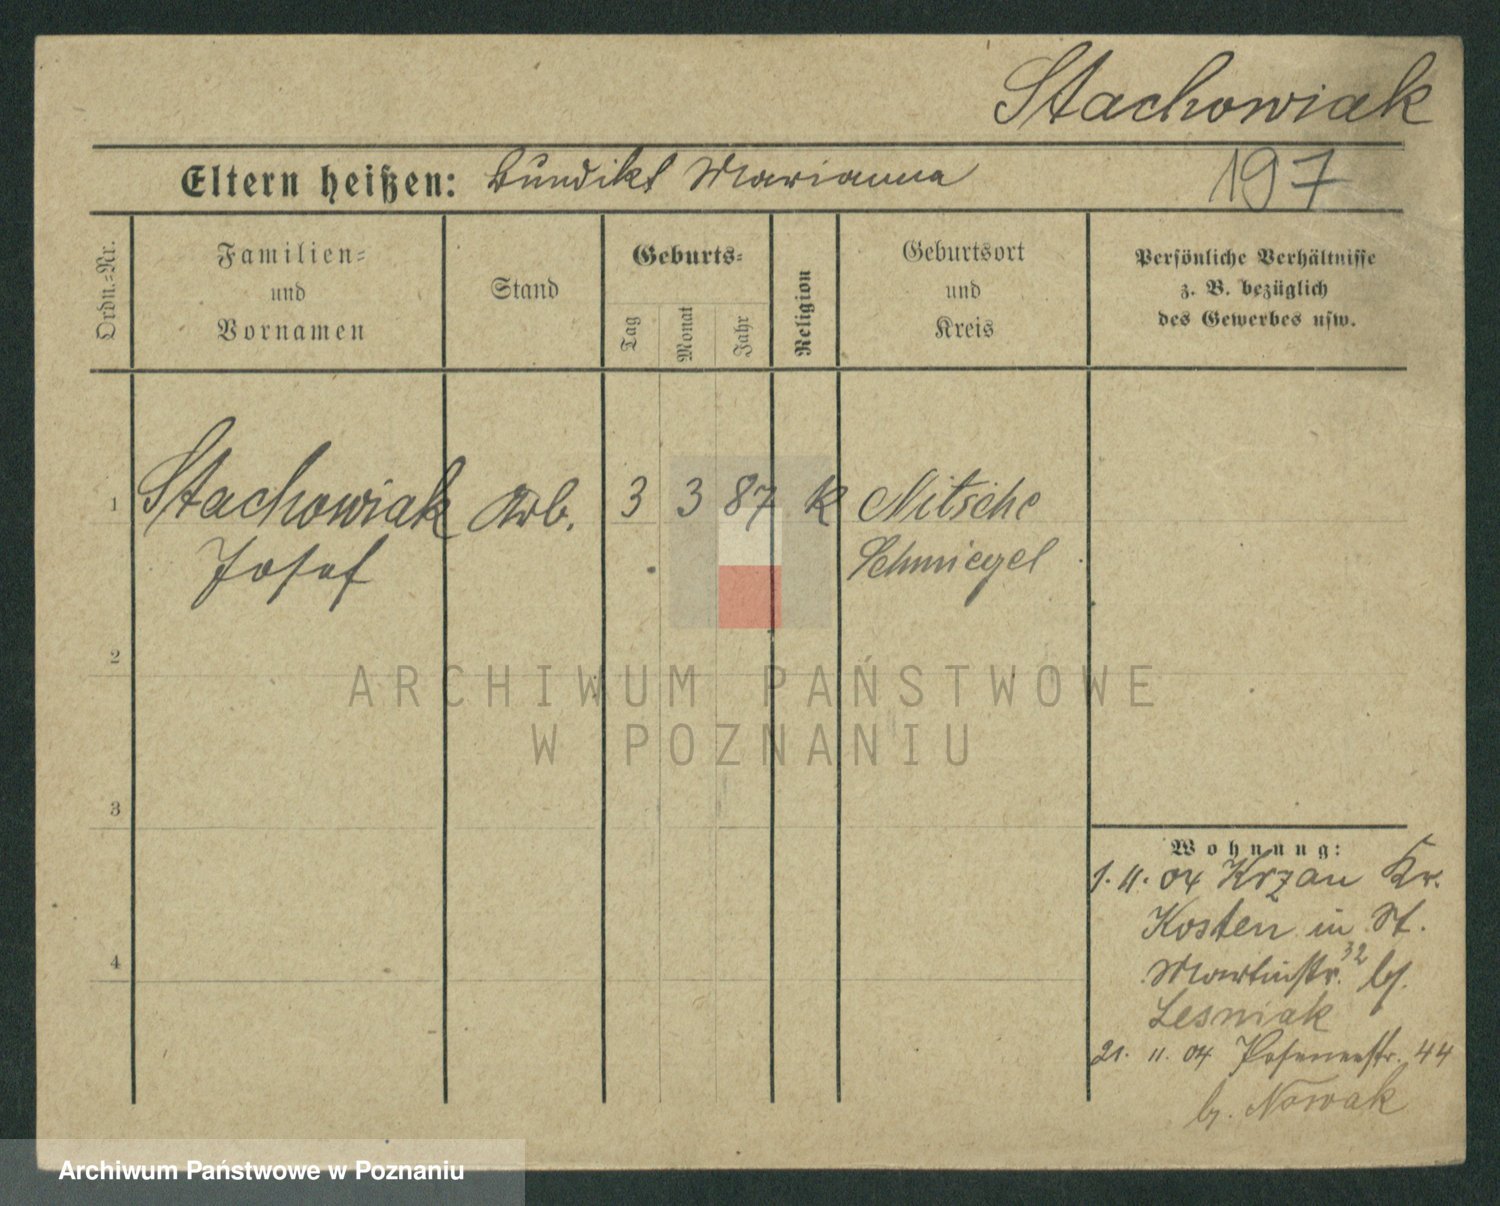 Stachowiak
Eltern heißen: Marianna
197
Ordn.-Nr.
Familien-
und
Vornamen
Stand
Geburts-
Tag
Monat
Jahr
Religion
Geburtsort
und
Kreis
Persönliche Verhältnisse
z. B. bezüglich
des Gewerbes usw.
1 Stachowiak Arb. 3 3 87 K Nitsche
Josef Schmiegel
2
3
4
Wohnung:
1. 11. 04 Krzan Kr.
Kosten in St.
Martinstr. 32 bj.
Lesniak
21. 11. 04 Posenerstr. 44
bj. Nowak
ARCHIWUM PAŃSTWOWE
W POZNANIU
Archiwum Państwowe w Poznaniu